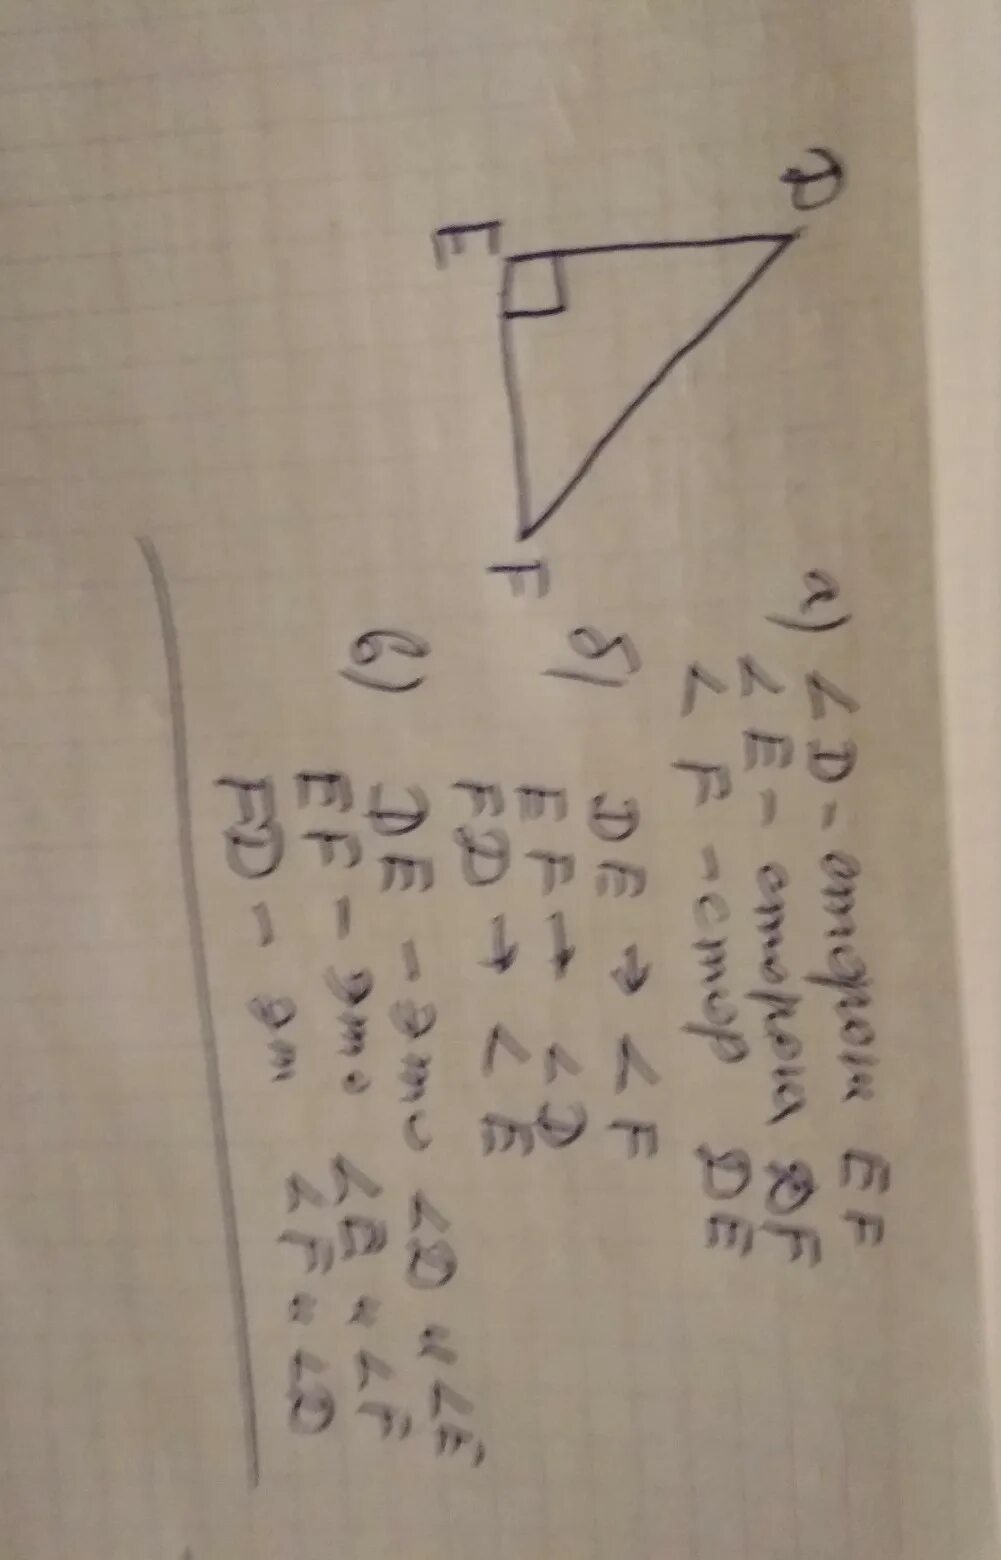 D
E
F
а) ∠D - сторона EF
∠E - сторона DF
∠F - стор DE
б) DE → ∠F
EF → ∠D
FD → ∠E
в) DE - это ∠D и ∠E
EF - это ∠E и ∠F
FD - эт ∠F и ∠D